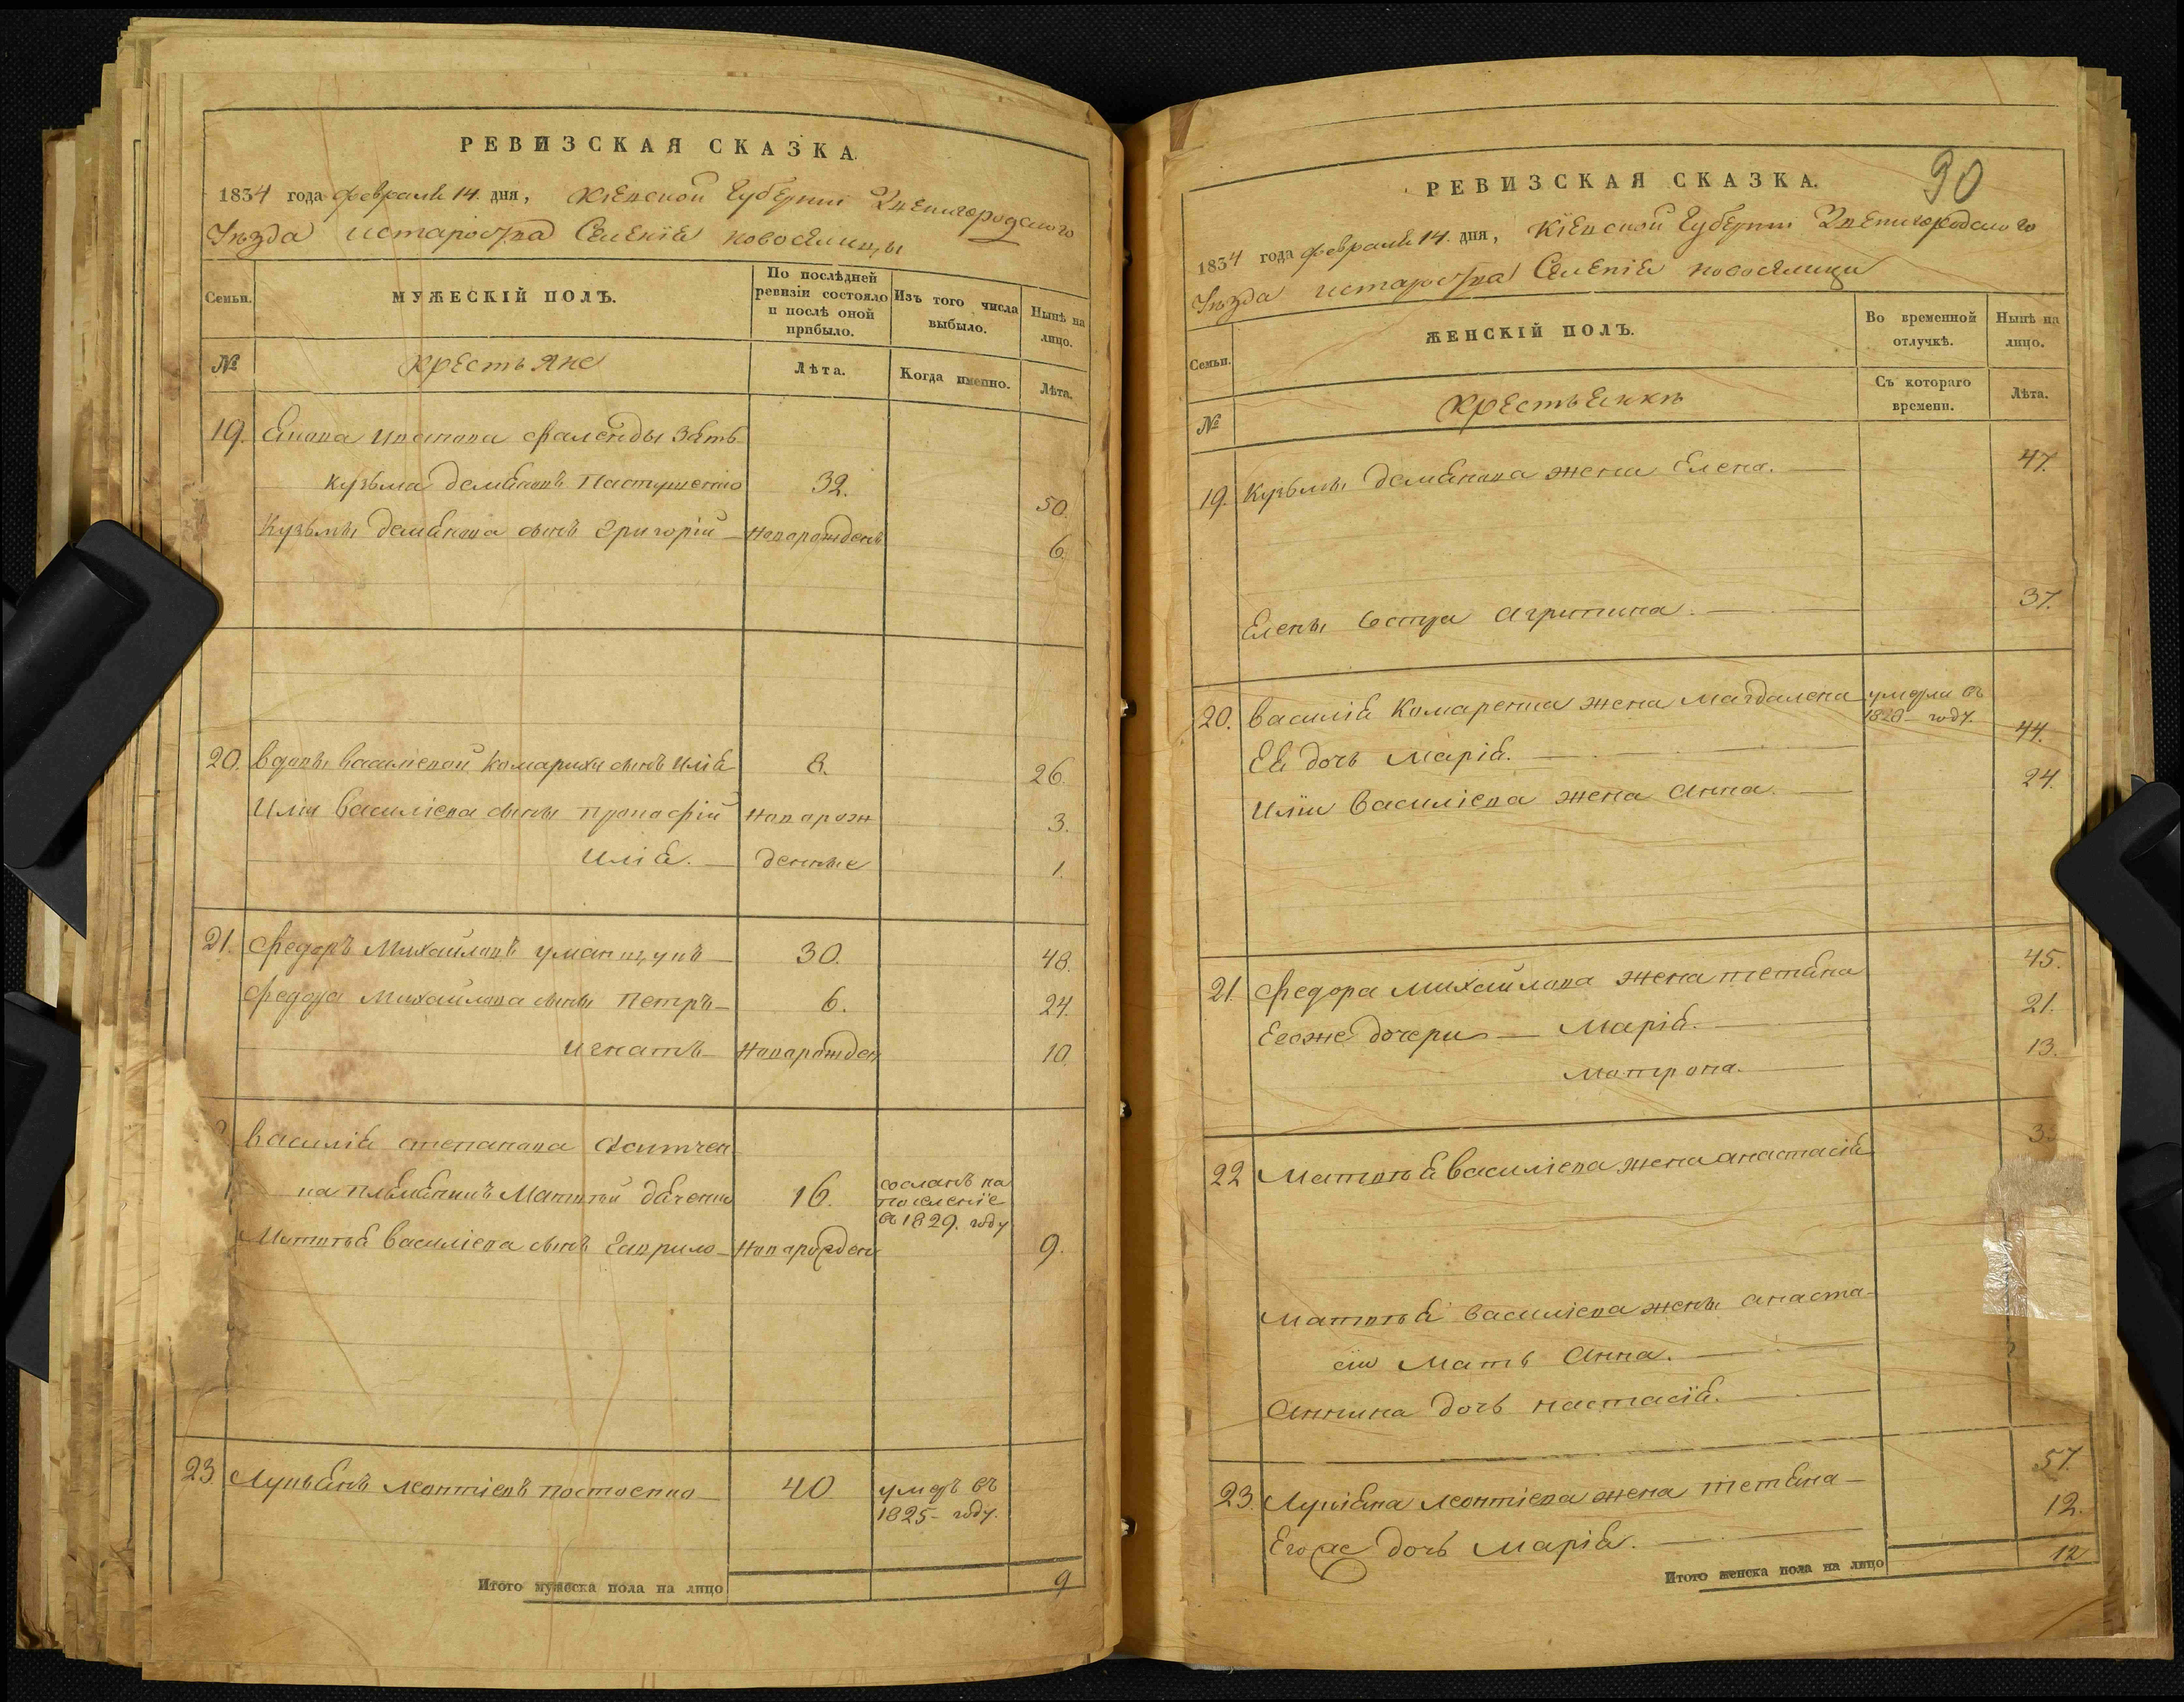 РЕВИЗСКАЯ СКАЗКА.
1834 года февраля 14. дня, Кіевской Губерніи Звенигородского
Уѣзда Староства Селенія новоселицы
Семьи.
МУЖЕСКІЙ ПОЛЪ.
По послѣдней ревизіи состояло и послѣ оной прибыло.
Изъ того числа выбыло.
Нынѣ на лицо.
№
крестьяне
Лѣта.
Когда именно.
Лѣта.
19. зять
кузьма демяновъ 32. 50.
Кузьмы демянова сынъ Григорій новорожденъ 6.
20. вдовы василіевой комарихи сынъ илія 8. 26.
Иліи василіева сыны прокофій новорож 3.
илія. денные 1.
21. федоръ михайловъ 30. 48.
федора михайлова сыны петръ 6. 24.
игнатъ новорожден 10.
василія степанова
на племянникъ матвѣй 16. сосланъ на поселеніе въ 1829. году
Матвѣя василіева сынъ гаврило новорожден 9.
23. Лукьянъ леонтіевъ 40 умеръ въ 1825- году.
Итого мужеска пола на лицо 9
90
РЕВИЗСКАЯ СКАЗКА.
1834 года февраля 14. дня, Кіевской Губерніи Звенигородского
Уѣзда Староства Селенія новоселици
Семьи.
ЖЕНСКІЙ ПОЛЪ.
Во временной отлучкѣ.
Нынѣ на лицо.
№
крестьянки
Съ котораго времени.
Лѣта.
19. Кузьмы демянова жена Елена. 47.
Елены сестра агрипина. 37.
20. василія комаренка жена магдалена умерла въ 1828- году.
Ея дочь марія. 44.
Иліи василіева жена анна. 24.
21. федора михайлова жена тетяна 45.
Егоже дочери марія. 21.
мотрона. 13.
22 матвѣя василіева жена анастасія
матвѣя василіева жены анаста-
сіи мать анна.
аннина дочь настасія.
23. Лукіяна леонтіева жена тетяна 57.
Его же дочь марія. 12.
Итого женска пола на лицо 12